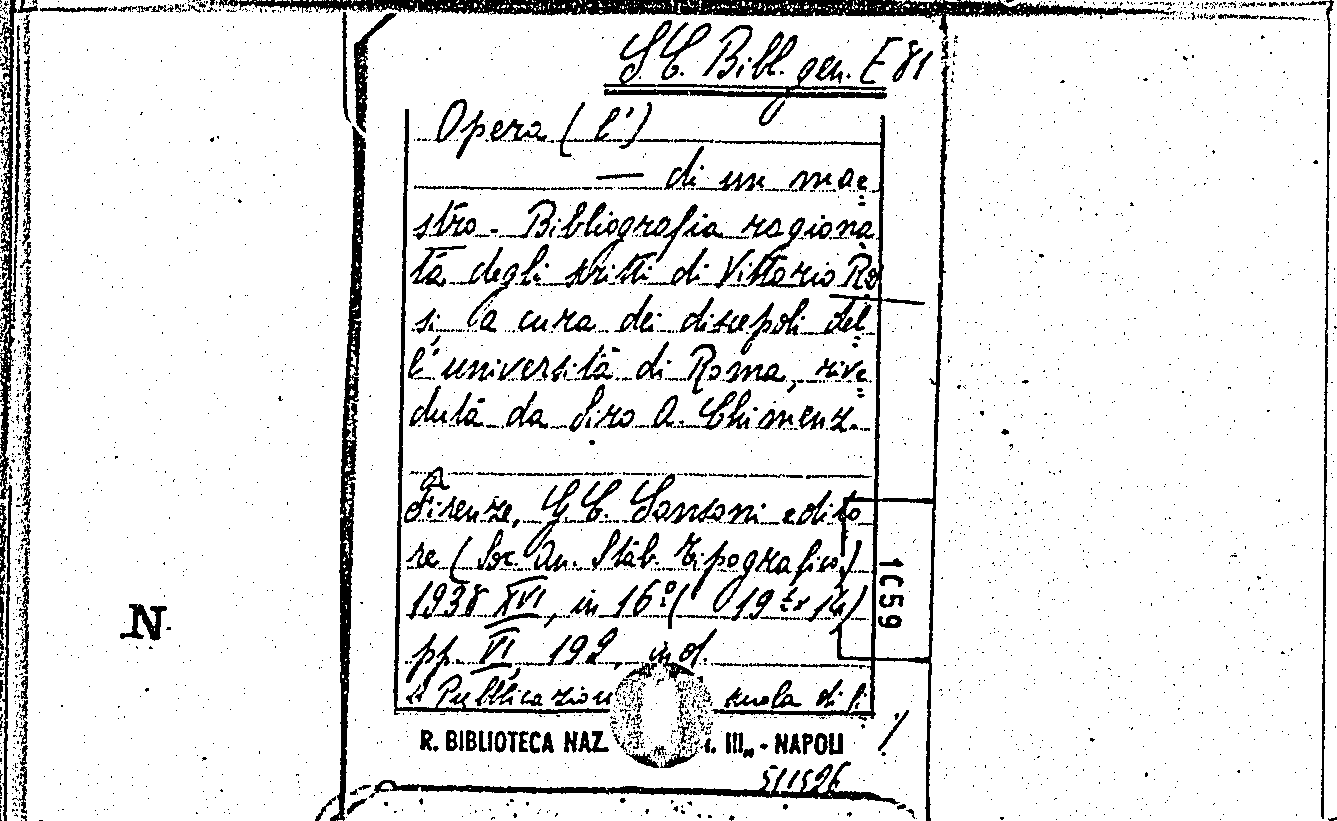 S.C. Bibl. gen. E 81
Opera (l')
— di un mae=
stro - Bibliografia ragiona
ta degli scritti di Vittorio Ros
si, a cura dei discepoli del=
l'università di Roma, rive=
duta da Siro A. Chimenz.
Firenze, G. C. Sansoni edito
re (Soc. An. Stab. Tipografico)
1938 XVI, in 16° ( 19 14)
pp. VI, 192, in d.
Pubblicazion scuola di fi
R. BIBLIOTECA NAZ. III„ - NAPOLI
511526
1C59
N